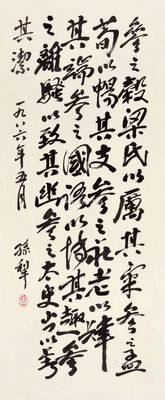 參之穀梁氏以厲其氣參之孟
荀以暢其支參之莊老以肆
其端參之國語以博其趣參
之離騷以致其幽參之太史公以著
其潔 一九八六年五月 孫犁